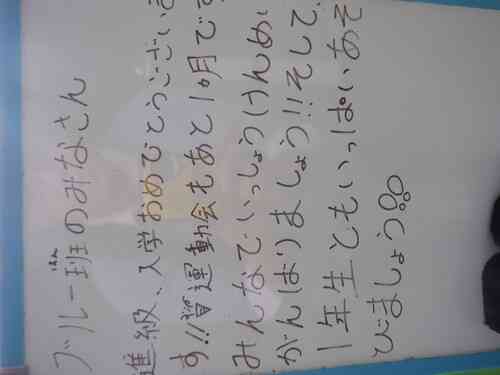 ブルー班のみなさん
はん
進級、入学おめでとうございま
す!!運動会もあと1か月です
みんなでいっしょうけんめい
がんばりましょう!!そして、
1年生ともいっぱいあそ
びましょう